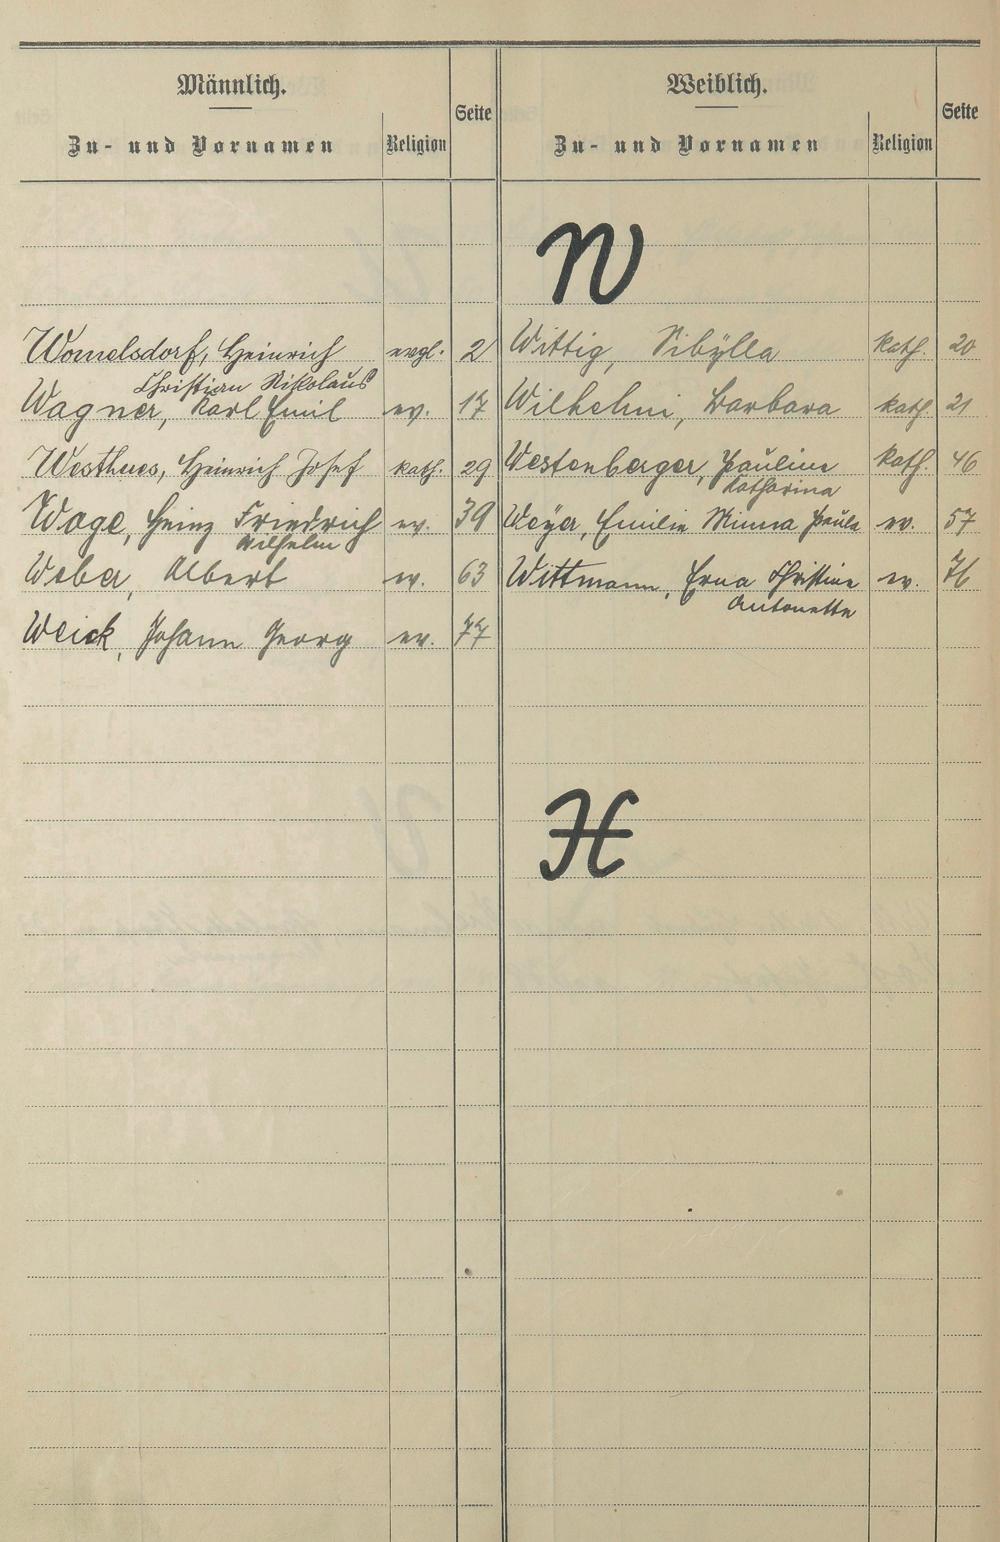 Männlich.
Zu- und Vornamen
Religion
Seite
Weiblich.
Zu- und Vornamen
Religion
Seite
W
Womelsdorf, Heinrich evgl. 2
Christian Nikolaus
Wagner, Karl Emil ev. 17
Westhues, Heinrich Josef kath. 29
Woge, Heinz Friedrich ev. 39
Wilhelm
Weber, Albert ev. 63
Weick, Johann Georg ev. 77
Wittig, Sibÿlla kath. 20
Wilhelmi, Barbara kath. 21
Westenberger, Pauline kath. 46
Katharina
Weÿer, Emilie Minna Paula ev. 57
Wittmann, Erna Christine ev. 76
Antonette